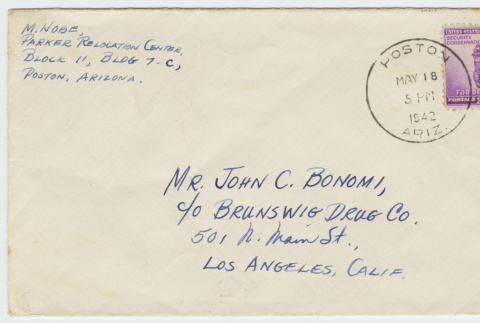 M. NOBE,
PARKER RELOCATION CENTER,
BLOCK 11, BLDG 7-C,
POSTON, ARIZONA.
POSTON
MAY 18
5 PM
1942
ARIZ.
UNITED STATES
SECURITY
CONSERVA
FOR DE
POSTAGE
MR. JOHN C. BONOMI,
c/o BRUNSWIG DRUG CO.
501 N. Main St.,
LOS ANGELES, CALIF.